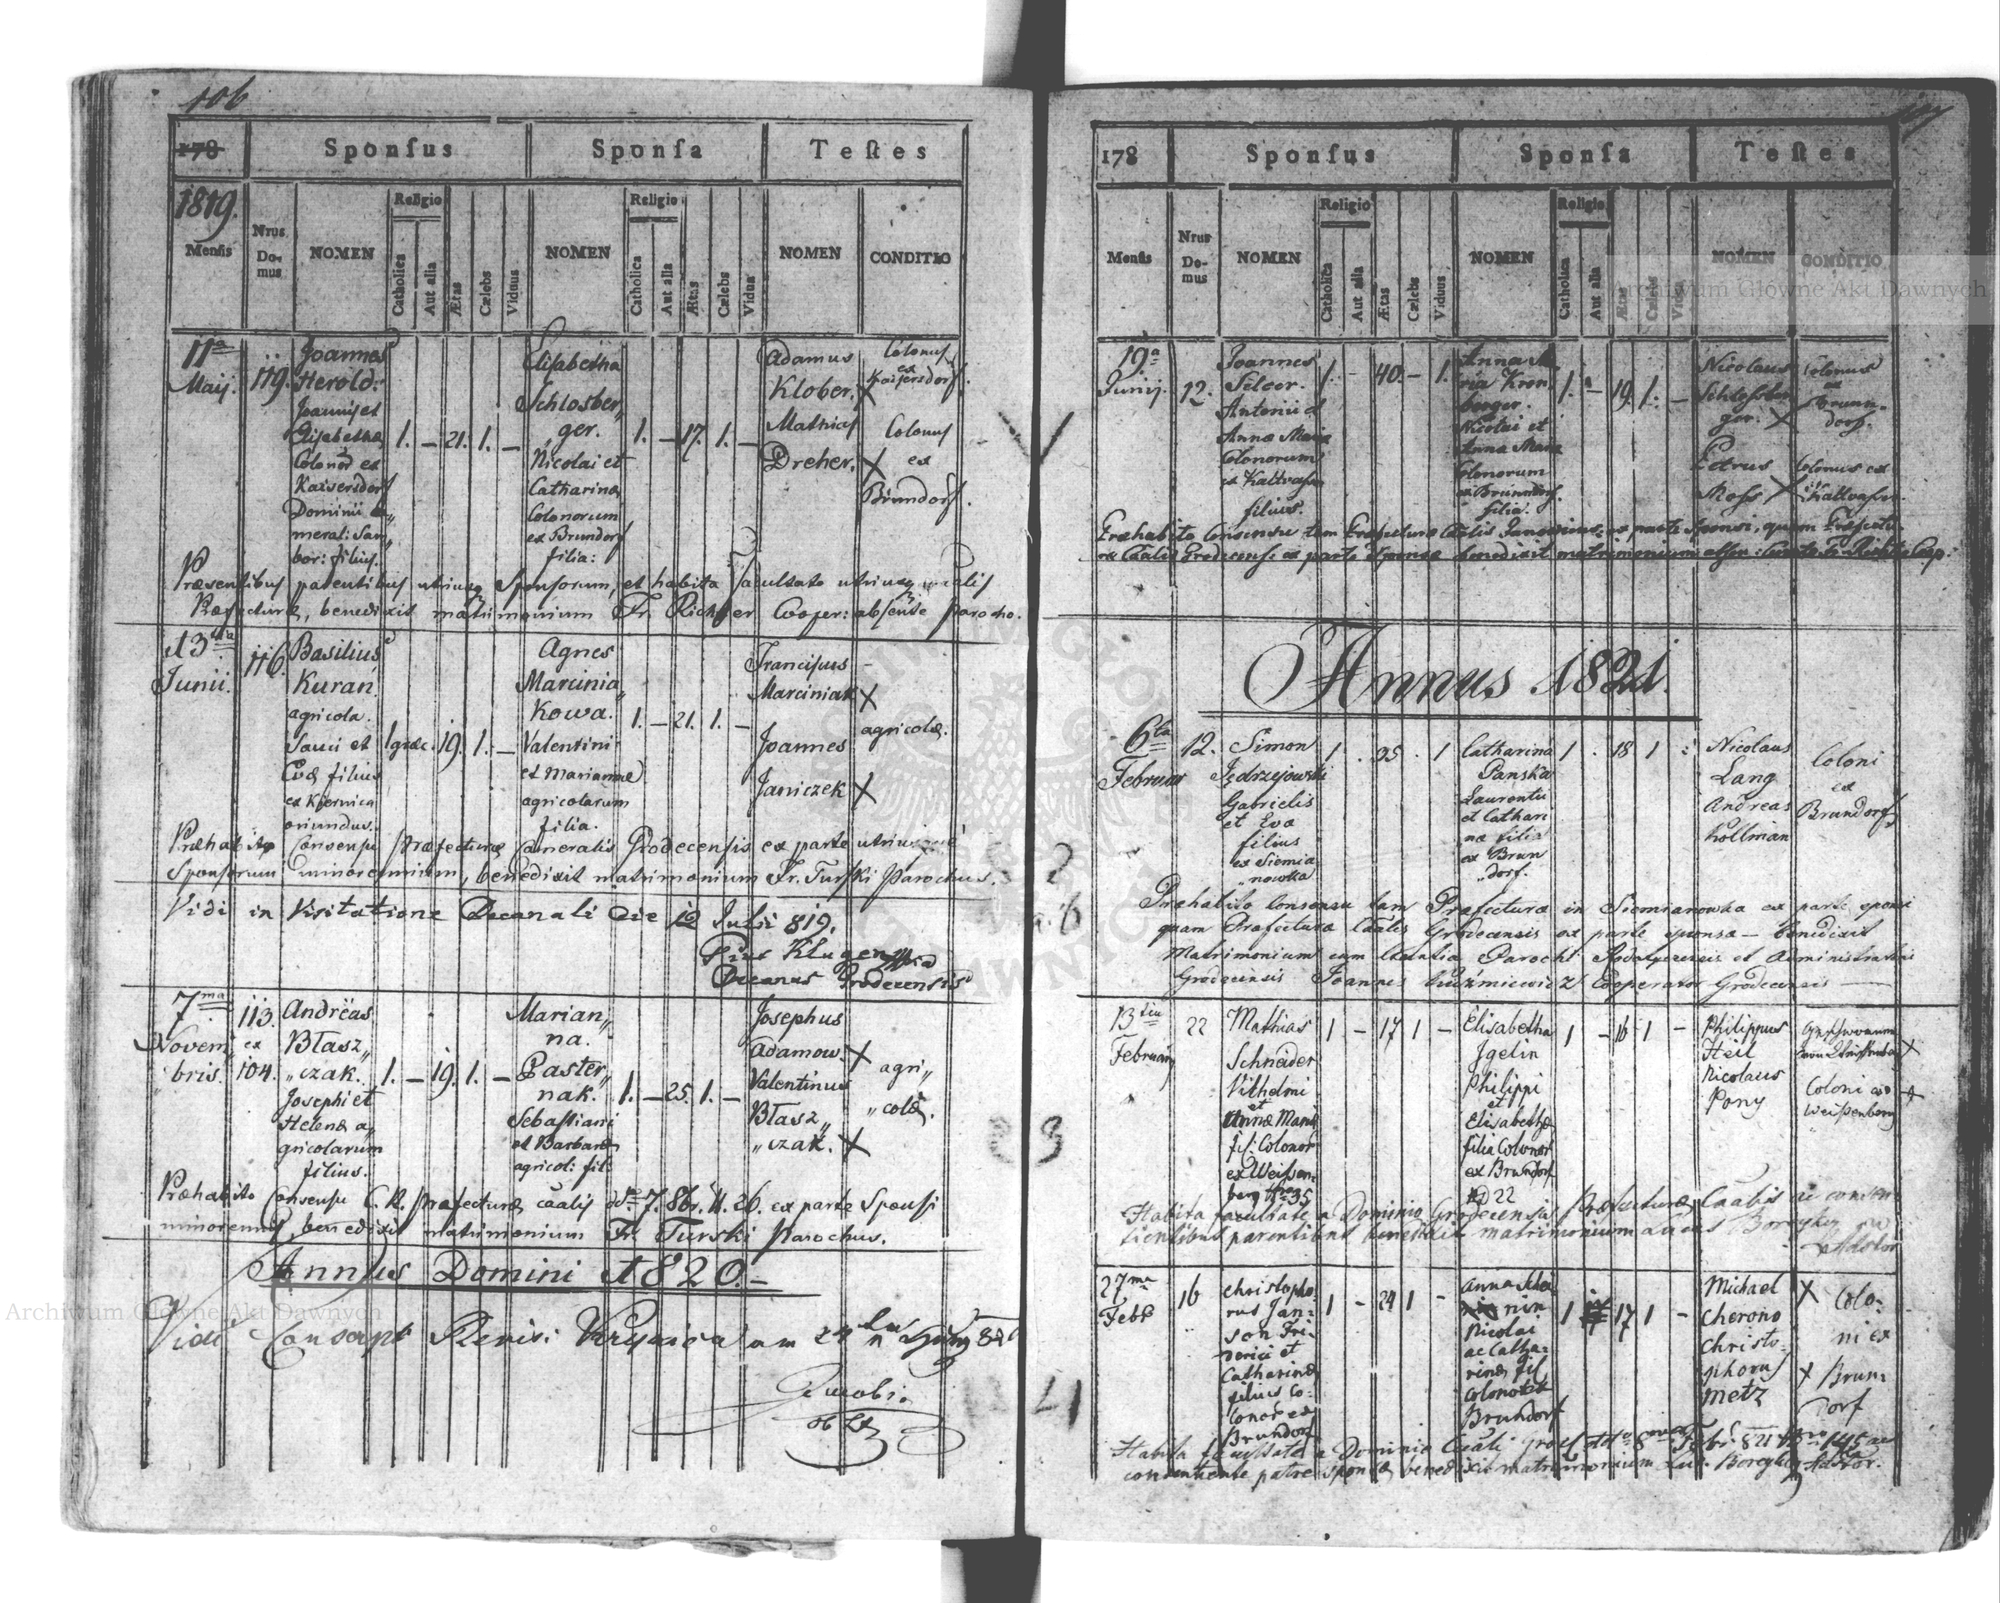 106
178 Sponsus Sponsa Testes
1819.
Mensis Nrus Domus NOMEN Religio Catholica Aut alia Ætas Cælebs Viduus NOMEN Religio Catholica Aut alia Ætas Cælebs Vidua NOMEN CONDITIO
11a Maij. 119.
Joannes
Herold.
Joannis et
Elisabethæ
Colonor ex
Kaisersdorf
Dominii Ca„
meral: Sam„
bor: filius.
1. – 21. 1. –
Elisabetha
Schlosber„
„ger.
Nicolai et
Catharinæ
Colonorum
ex Brundorf
filia:
1. – 17. 1. –
Adamus
Klober. X
Mathias
Dreher. X
Colonus
ex
Kaisersdorf.
Colonus
ex
Brundorf.
Præsentibus parentibus utriusq Sponsorum, et habita facultate utriusq Caalis
Præfecturæ, benedixit matrimonium Fr. Richter Cooper: absente Parocho.
13tia Junii. 116.
Basilius
Kuran
agricola.
Sauci et
Evæ filius
ex Kiernica
oriundus.
1 græc. 19. 1. –
Agnes
Marcinia„
Kowa.
Valentini
et Mariannæ
agricolarum
filia.
1. – 21. 1. –
Franciscus
Marciniak X
Joannes
Janiczek X
agricolæ.
Præhabito Consensu Præfecturæ Cameralis Grodecensis ex parte utriusque
Sponsorum minorennium, benedixit matrimonium Fr. Turski Parochus.
Vidi in Visitatione Decanali Die 12 Julii 819.
Pius Kluger
Decanus Grodecensis
7ma Novem„ bris. 113. ex 104.
Andréas
Błasz„
„czak.
Josephi et
Helenæ a„
gricolarum
filius.
1. – 19. 1. –
Marian„
na.
Paster„
nak.
Sebastiani
et Barbaræ
agricol: fil:
1. – 25. 1. –
Josephus
Adamow. X
Valentinus
Błasz„
„czak. X
agri„
„colæ.
Præhabito Consensu C.R. Præfecturæ Caalis ddto 7. 8br. N. 26. ex parte Sponsi
minorennis, benedixit matrimonium Fr. Turski Parochus.
Annus Domini 1820.–
178 Sponsus Sponsa Testes
Mensis Nrus Domus NOMEN Religio Catholica Aut alia Ætas Cælebs Viduus NOMEN Religio Catholica Aut alia Ætas Cælebs Vidua NOMEN CONDITIO
19a Junij. 12.
Joannes
Selcer.
Antonii et
Annæ Mariæ
Colonorum
ex Kaltvasser
filius.
1. – 40. – 1.
Anna Ma
ria Kron
berger.
Nicolai et
Annæ Mariæ
Colonorum
ex Brunndorf.
filia.
1. – 19. 1. –
Nicolaus
Schlosber
ger. X
Petrus
Moss X
Colonus
ex
Brunn„
dorf.
Colonus ex
Kaltvasser.
Annus 1821.
6ta Februar 12.
Simon
Jędrzejowski
Gabrielis
et Eva
filius
ex Siemia
„nowka
1 . 35 . 1
Catharina
Panska
Laurentii
et Cathari
næ filia
ex Brun
„dorf.
1 . 18 1
Nicolaus
Lang
Andreas
Kollman
Coloni
ex
Brundorf
Præhabito Consensu tam Præfecturæ in Siemianowka ex parte sponsi
quam Præfecturæ Caalis Grodecensis ex parte sponsæ – benedixit
Matrimonium cum licentia Parochi et Administratoris
Grodecensis Joannes Kuźmiewicz Cooperator Grodecensis
13tia Februarj 22
Mathias
Schneider
Vilhelmi
et
Annæ Mariæ
fil: Colonor
ex Weissen
berg Nro 35
1 – 17 1 –
Elisabetha
Jgelin
Philippi
et
Elisabethæ
filia Colonor
ex Brundorf
No 22
1 – 16 1 –
Philippus
Heil
Nicolaus
Pony
Coloni ex
Weissenberg
Habita facultate a Dominio Grodecensis Præfecturæ Caalis ac consen
tientibus parentibus benedixit matrimonium
27ma Febr 16
Christopho„
rus Jan„
son Fri„
derici et
Catharinæ
filius Co„
lonor ex
Brundorf
1 – 24 1 –
Nicolai
ac Catha„
rinæ fil
Colonor ex
Brundorf
1 17 1 –
Michael X
Cherono
Christo„
phorus X
Metz
Colo„
ni ex
Brun„
dorf
Habita facultate a Dominio Caali
consentiente patre sponsæ benedixit matrimonium
Archiwum Główne Akt Dawnych
Archiwum Główne Akt Dawnych